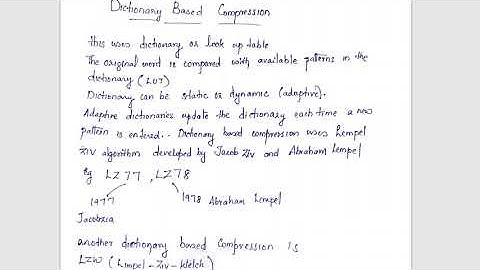 Dictionary Based Compression
this uses dictionary or look up table
The original word is compared with available patterns in the
dictionary (LUT)
Dictionary can be static or dynamic (adaptive).
Adaptive dictionaries update the dictionary each time a new
pattern is entered.. Dictionary based compression uses Lempel
Ziv algorithm developed by Jacob Ziv and Abraham Lempel
eg LZ77, LZ78
1977 1978 Abraham Lempel
Jacobzia
another dictionary based Compression is
LZW (Limpel-Ziv-Welch)